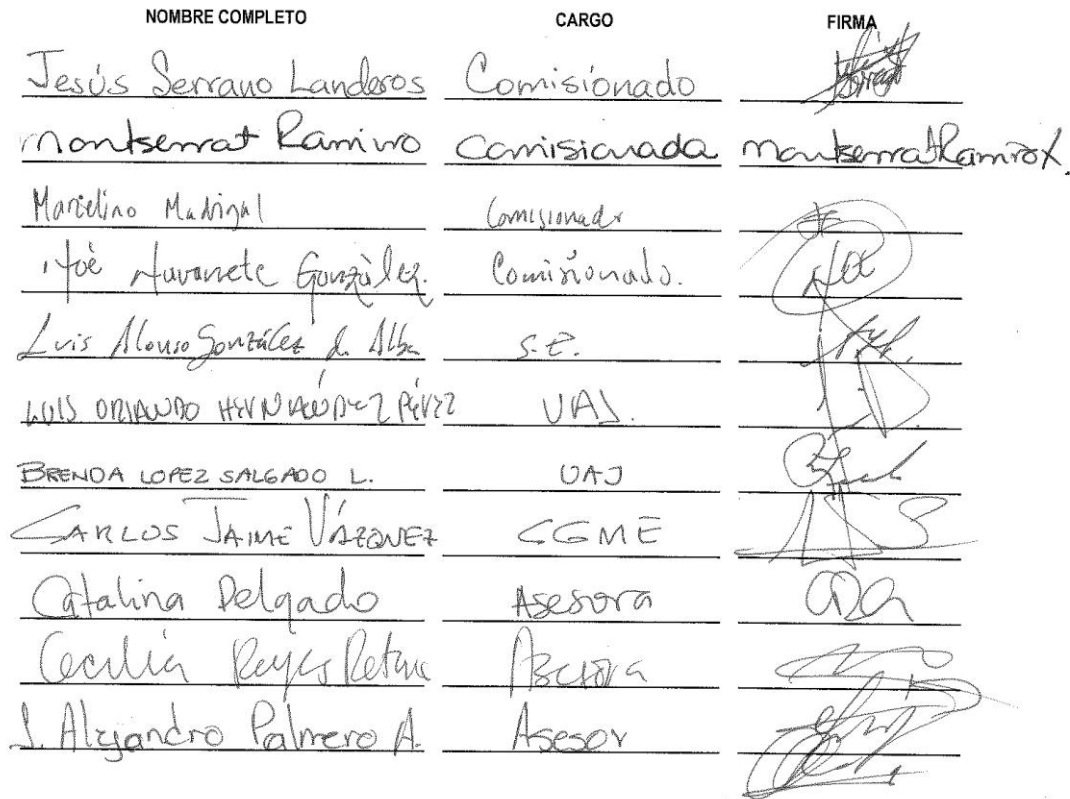 NOMBRE COMPLETO CARGO FIRMA
Jesús Serrano Landeros Comisionado
Montserrat Ramiro Comisionada MontserratRamiroX.
Marcelino Madrigal Comisionado
Noé Navarrete González. Comisionado.
Luis Alonso González d. Alba S.E.
LUIS ORLANDO HERNÁNDEZ PÉREZ UAJ.
BRENDA LOPEZ SALGADO L. UAJ
CARLOS JAIME VÁZQUEZ CGME
Catalina Delgado Asesora
Cecilia Reyes Retana Asesora
J. Alejandro Palmero A. Asesor